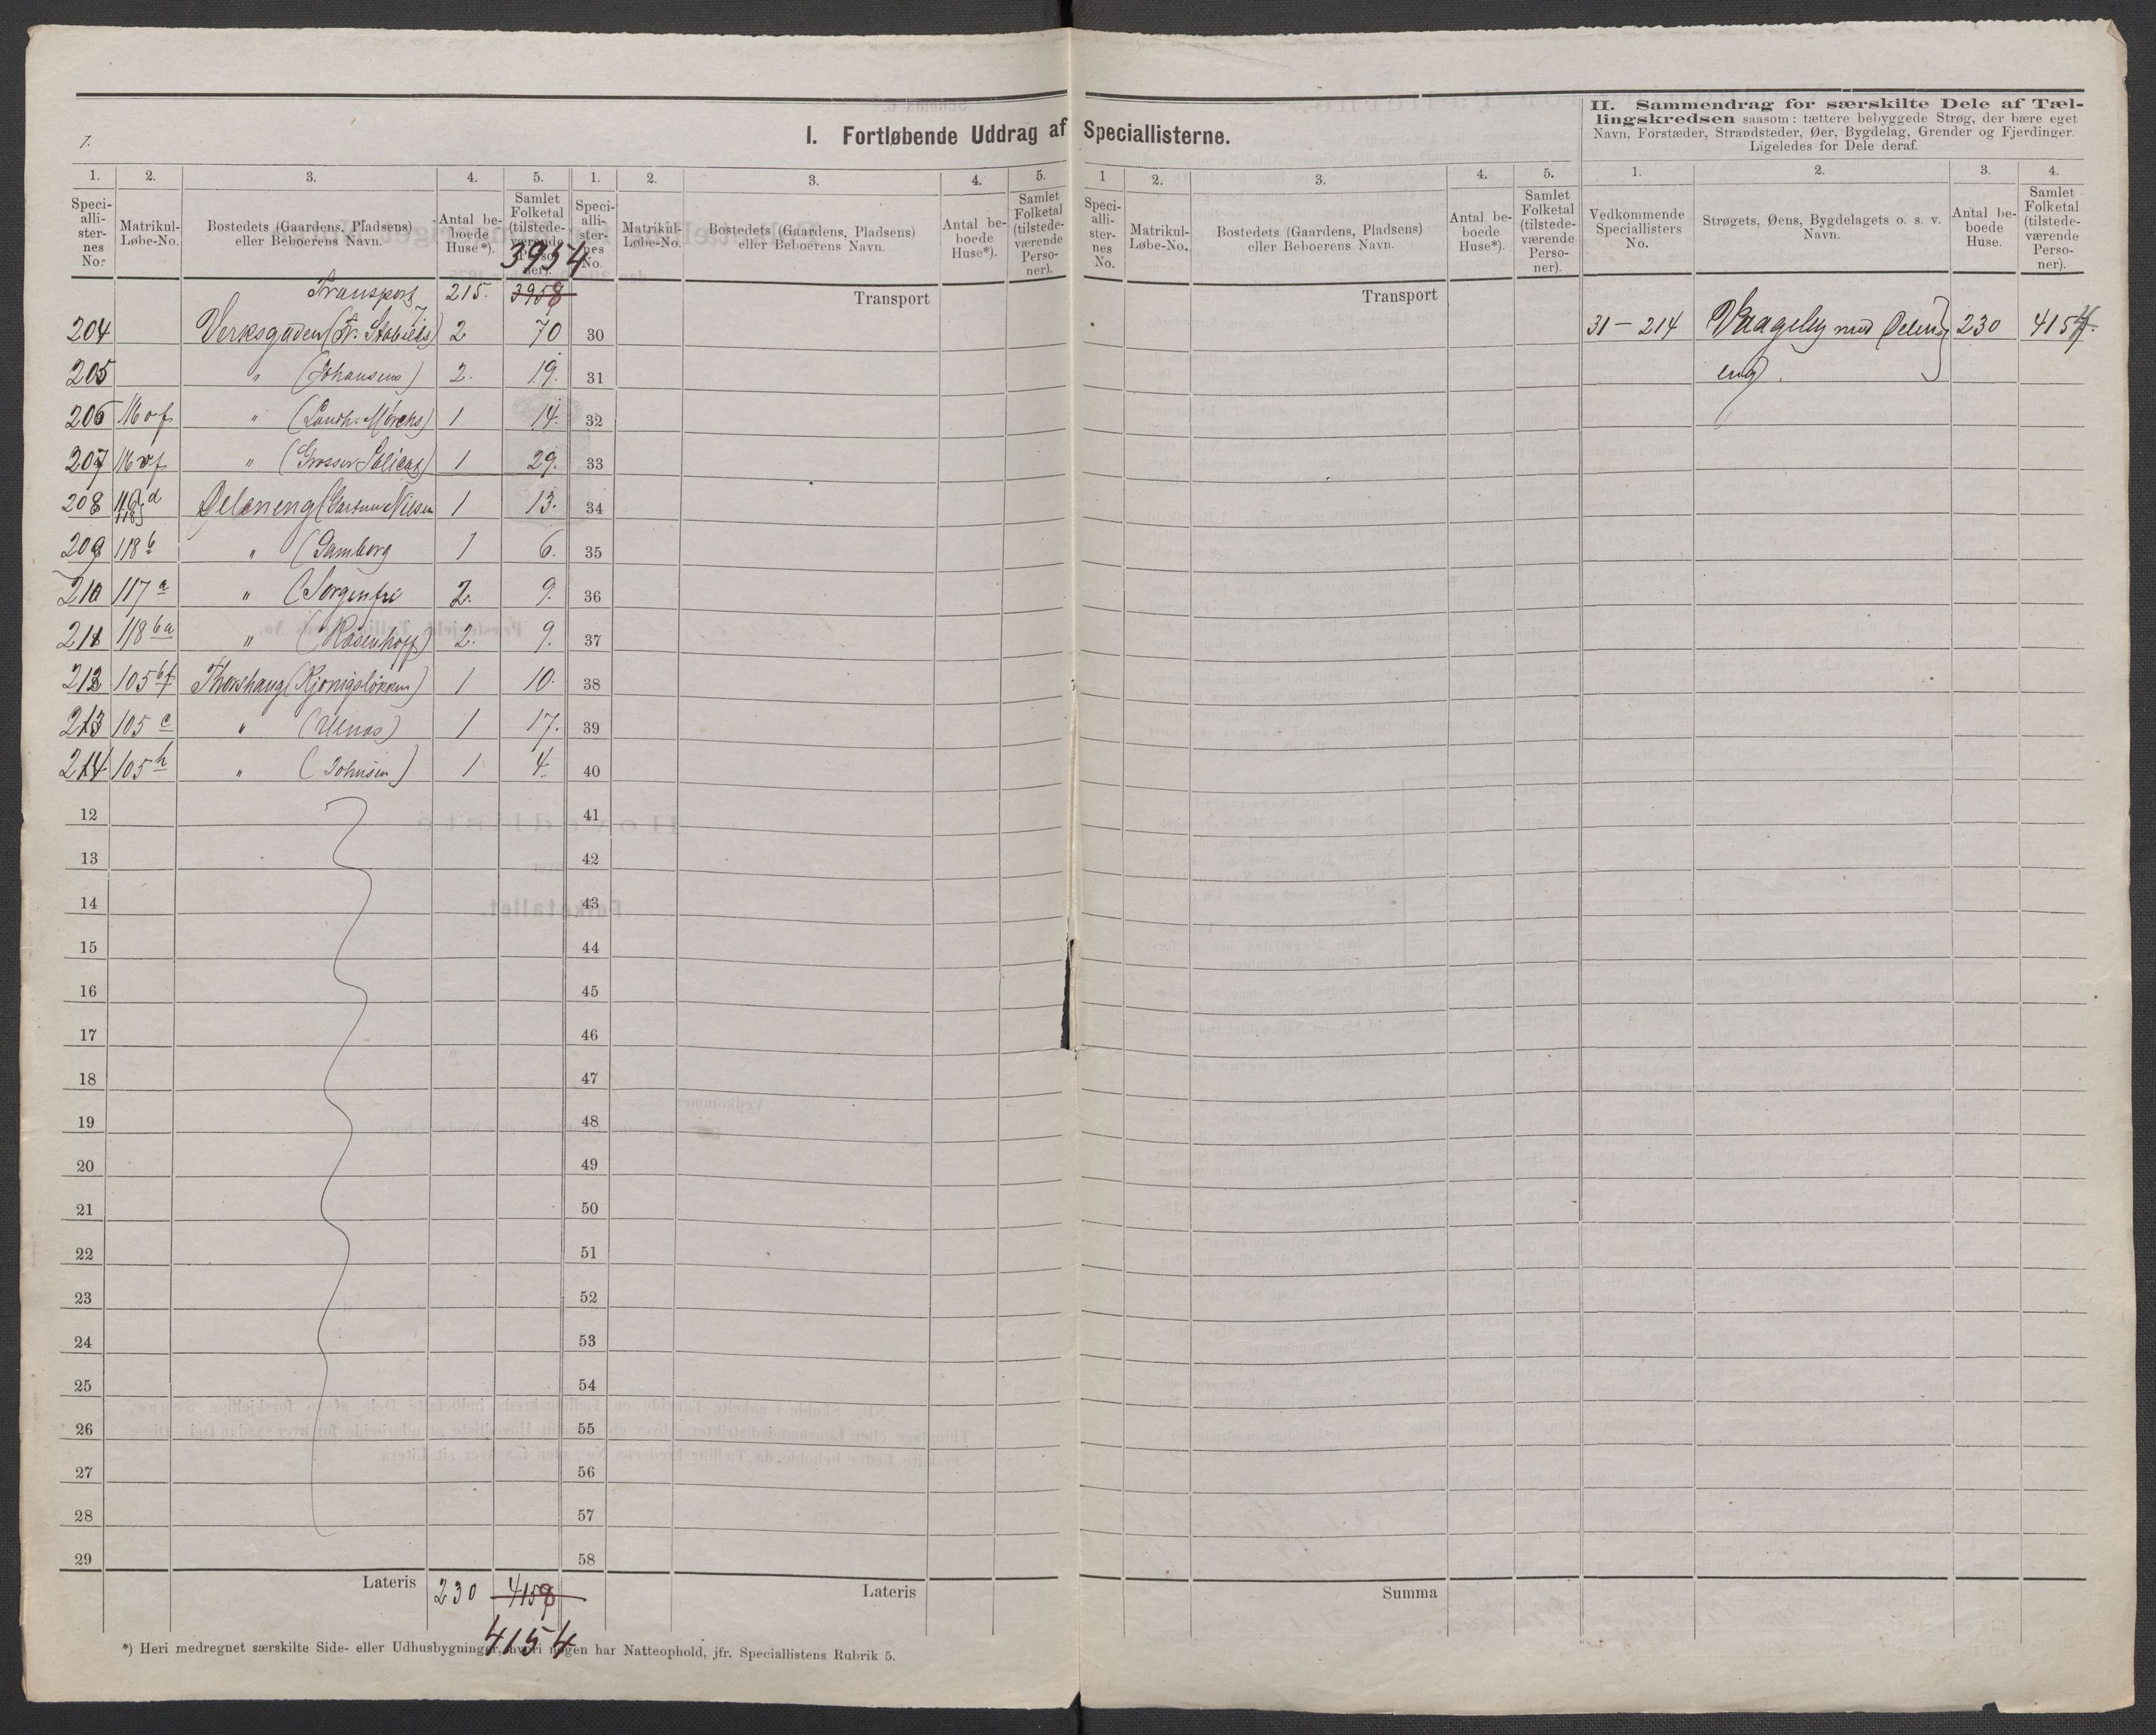 7.
I. Fortløbende Uddrag af Speciallisterne.
II. Sammendrag for særskilte Dele af Tæl-
lingskredsen saasom: tættere bebyggede Strøg, der bære eget
Navn, Forstæder, Strandsteder, Øer, Bygdelag, Grender og Fjerdinger.
Ligeledes for Dele deraf.
1. 2. 3. 4. 5. 1. 2. 3. 4. 5. 1 2. 3. 4. 5. 1. 2. 3. 4.
Speci-alli-ster-nes No. Matrikul-Løbe-No. Bostedets (Gaardens, Pladsens) eller Beboerens Navn. Antal be-boede Huse*). Samlet Folketal (tilstede-værende Perso-ner).
Speci-alli-ster-nes No. Matrikul-Løbe-No. Bostedets (Gaardens, Pladsens) eller Beboerens Navn. Antal be-boede Huse*). Samlet Folketal (tilstede-værende Perso-ner).
Speci-alli-ster-nes No. Matrikul-Løbe-No. Bostedets (Gaardens, Pladsens) eller Beboerens Navn. Antal be-boede Huse*). Samlet Folketal (tilstede-værende Perso-ner).
Vedkommende Speciallisters No. Strøgets, Øens, Bygdelagets o. s. v. Navn. Antal be-boede Huse. Samlet Folketal (tilstede-værende Perso-ner).
3954
Transport 215. 3958 Transport Transport
204 Verksgaden 2 70 30 31 - 214 Vaageby med Ølen- 230 4154
205 " (Johansens) 2. 19. 31 eng
206 116 of " (Landh. Mørchs) 1 14. 32
207 116 of " 1 29. 33
208 116 d 118 Øleneng (Gartner Nilsen 1 13. 34
209 118 b " (Gamborg 1 6. 35
210 117 a " (Sorgenfri 2. 9. 36
211 118 ba " (Rosenhoff) 2. 9. 37
212 105 bf Thorshaug (Kjønigsløkken) 1 10. 38
213 105 c " (Ulnæs) 1 17. 39
214 105 h " (Johnsen) 1 4. 40
12 41
13 42
14 43
15 44
16 45
17 46
18 47
19 48
20 49
21 50
22 51
23 52
24 53
25 54
26 55
27 56
28 57
29 58
Lateris 230 4158 Lateris Summa
4154
*) Heri medregnet særskilte Side- eller Udhusbygninger, hvori nogen har Natteophold, jfr. Speciallistens Rubrik 5.